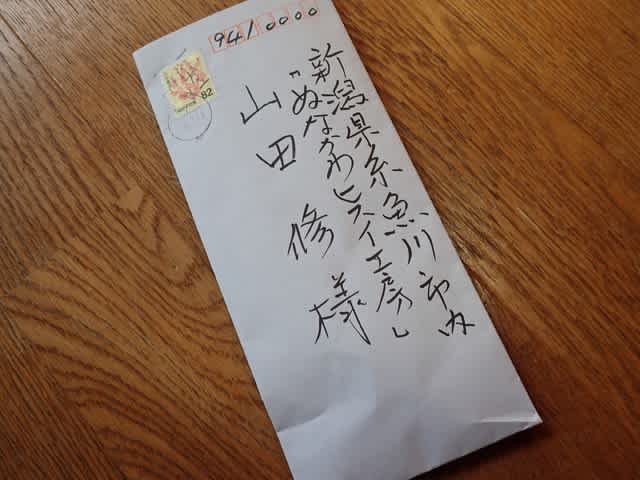 9410000
新潟県糸魚川市内
『ぬなかわヒスイ工房』
山田 修 様
82